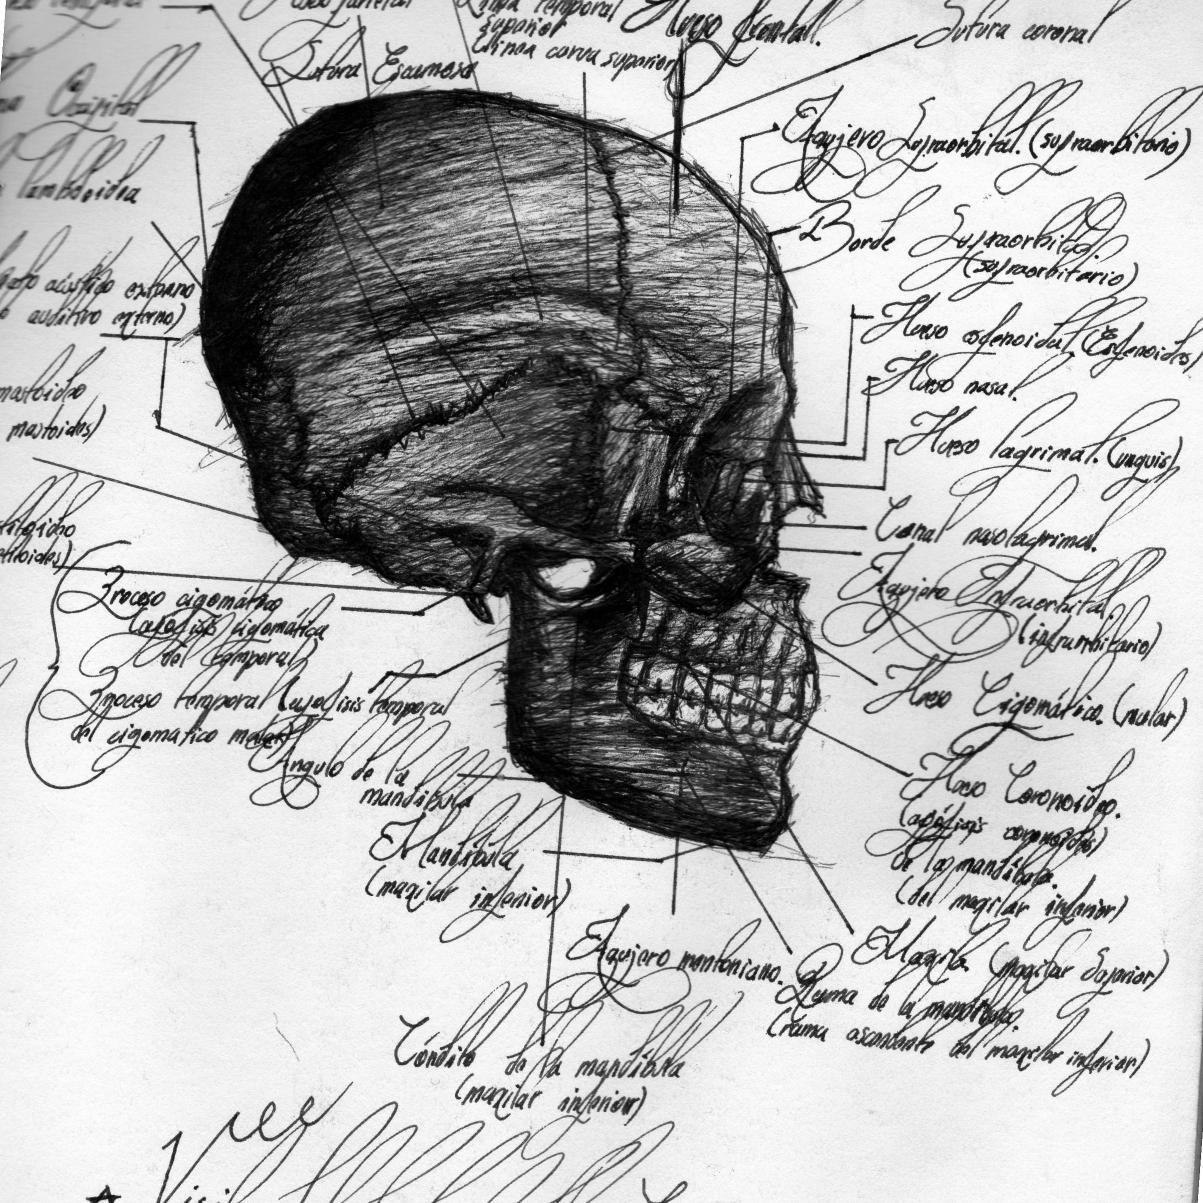 Hueso parietal
Línea temporal
superior
(línea curva superior)
Hueso frontal.
Sutura coronal
Sutura Escamosa
Occipital
lambdoidea
Agujero Supraorbital. (supraorbitario)
Borde Supraorbital
(supraorbitario)
acústico externo
auditivo externo)
Hueso esfenoidal (Esfenoides)
Hueso nasal.
mastoideo
mastoides)
Hueso lagrimal. (unguis)
Canal nasolagrimal.
Agujero Infraorbital.
(infraorbitario)
Proceso cigomático
(apófisis cigomática
del temporal)
Proceso temporal (apófisis temporal
del cigomatico malar)
Hueso Cigomático. (malar)
Angulo de la
mandíbula
Hueso Coronoideo.
(apófisis coronoides)
de la mandíbula.
(del maxilar inferior)
Mandíbula
(maxilar inferior)
Agujero mentoniano.
Maxila (maxilar Superior)
Rama de la mandíbula.
(rama ascendente del maxilar inferior)
Cóndilo de la mandíbula
(maxilar inferior)